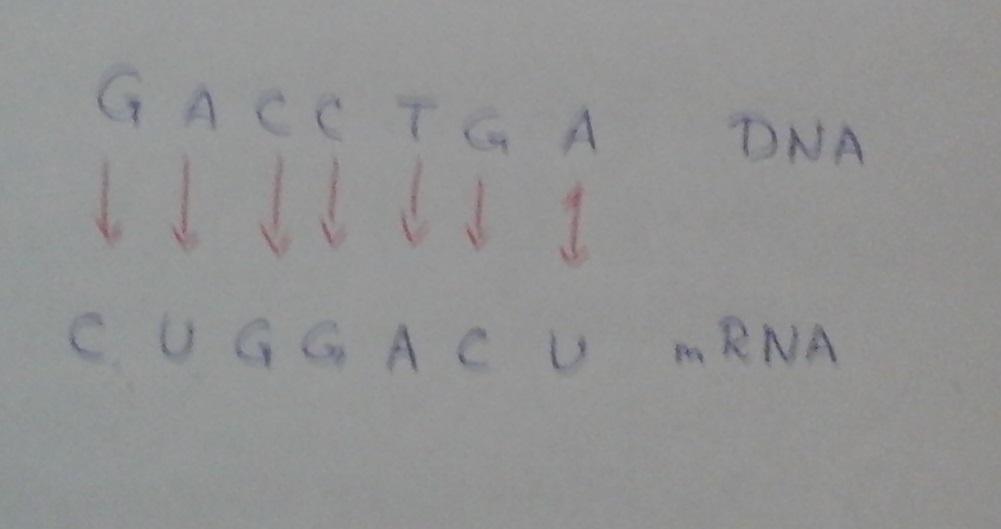 G A C C T G A DNA
C U G G A C U mRNA